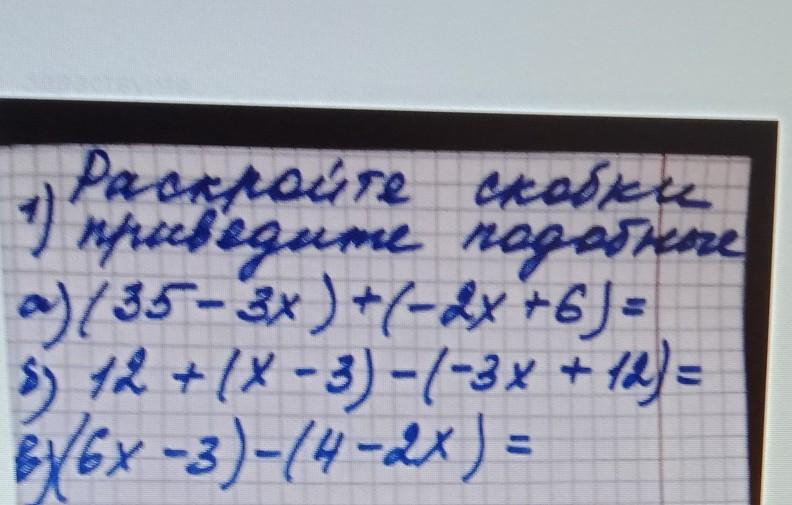 Раскройте скобки
1) приведите подобные
а) (35 - 3x) + (-2x + 6) =
б) 12 + (x - 3) - (-3x + 12) =
в) (6x - 3) - (4 - 2x) =